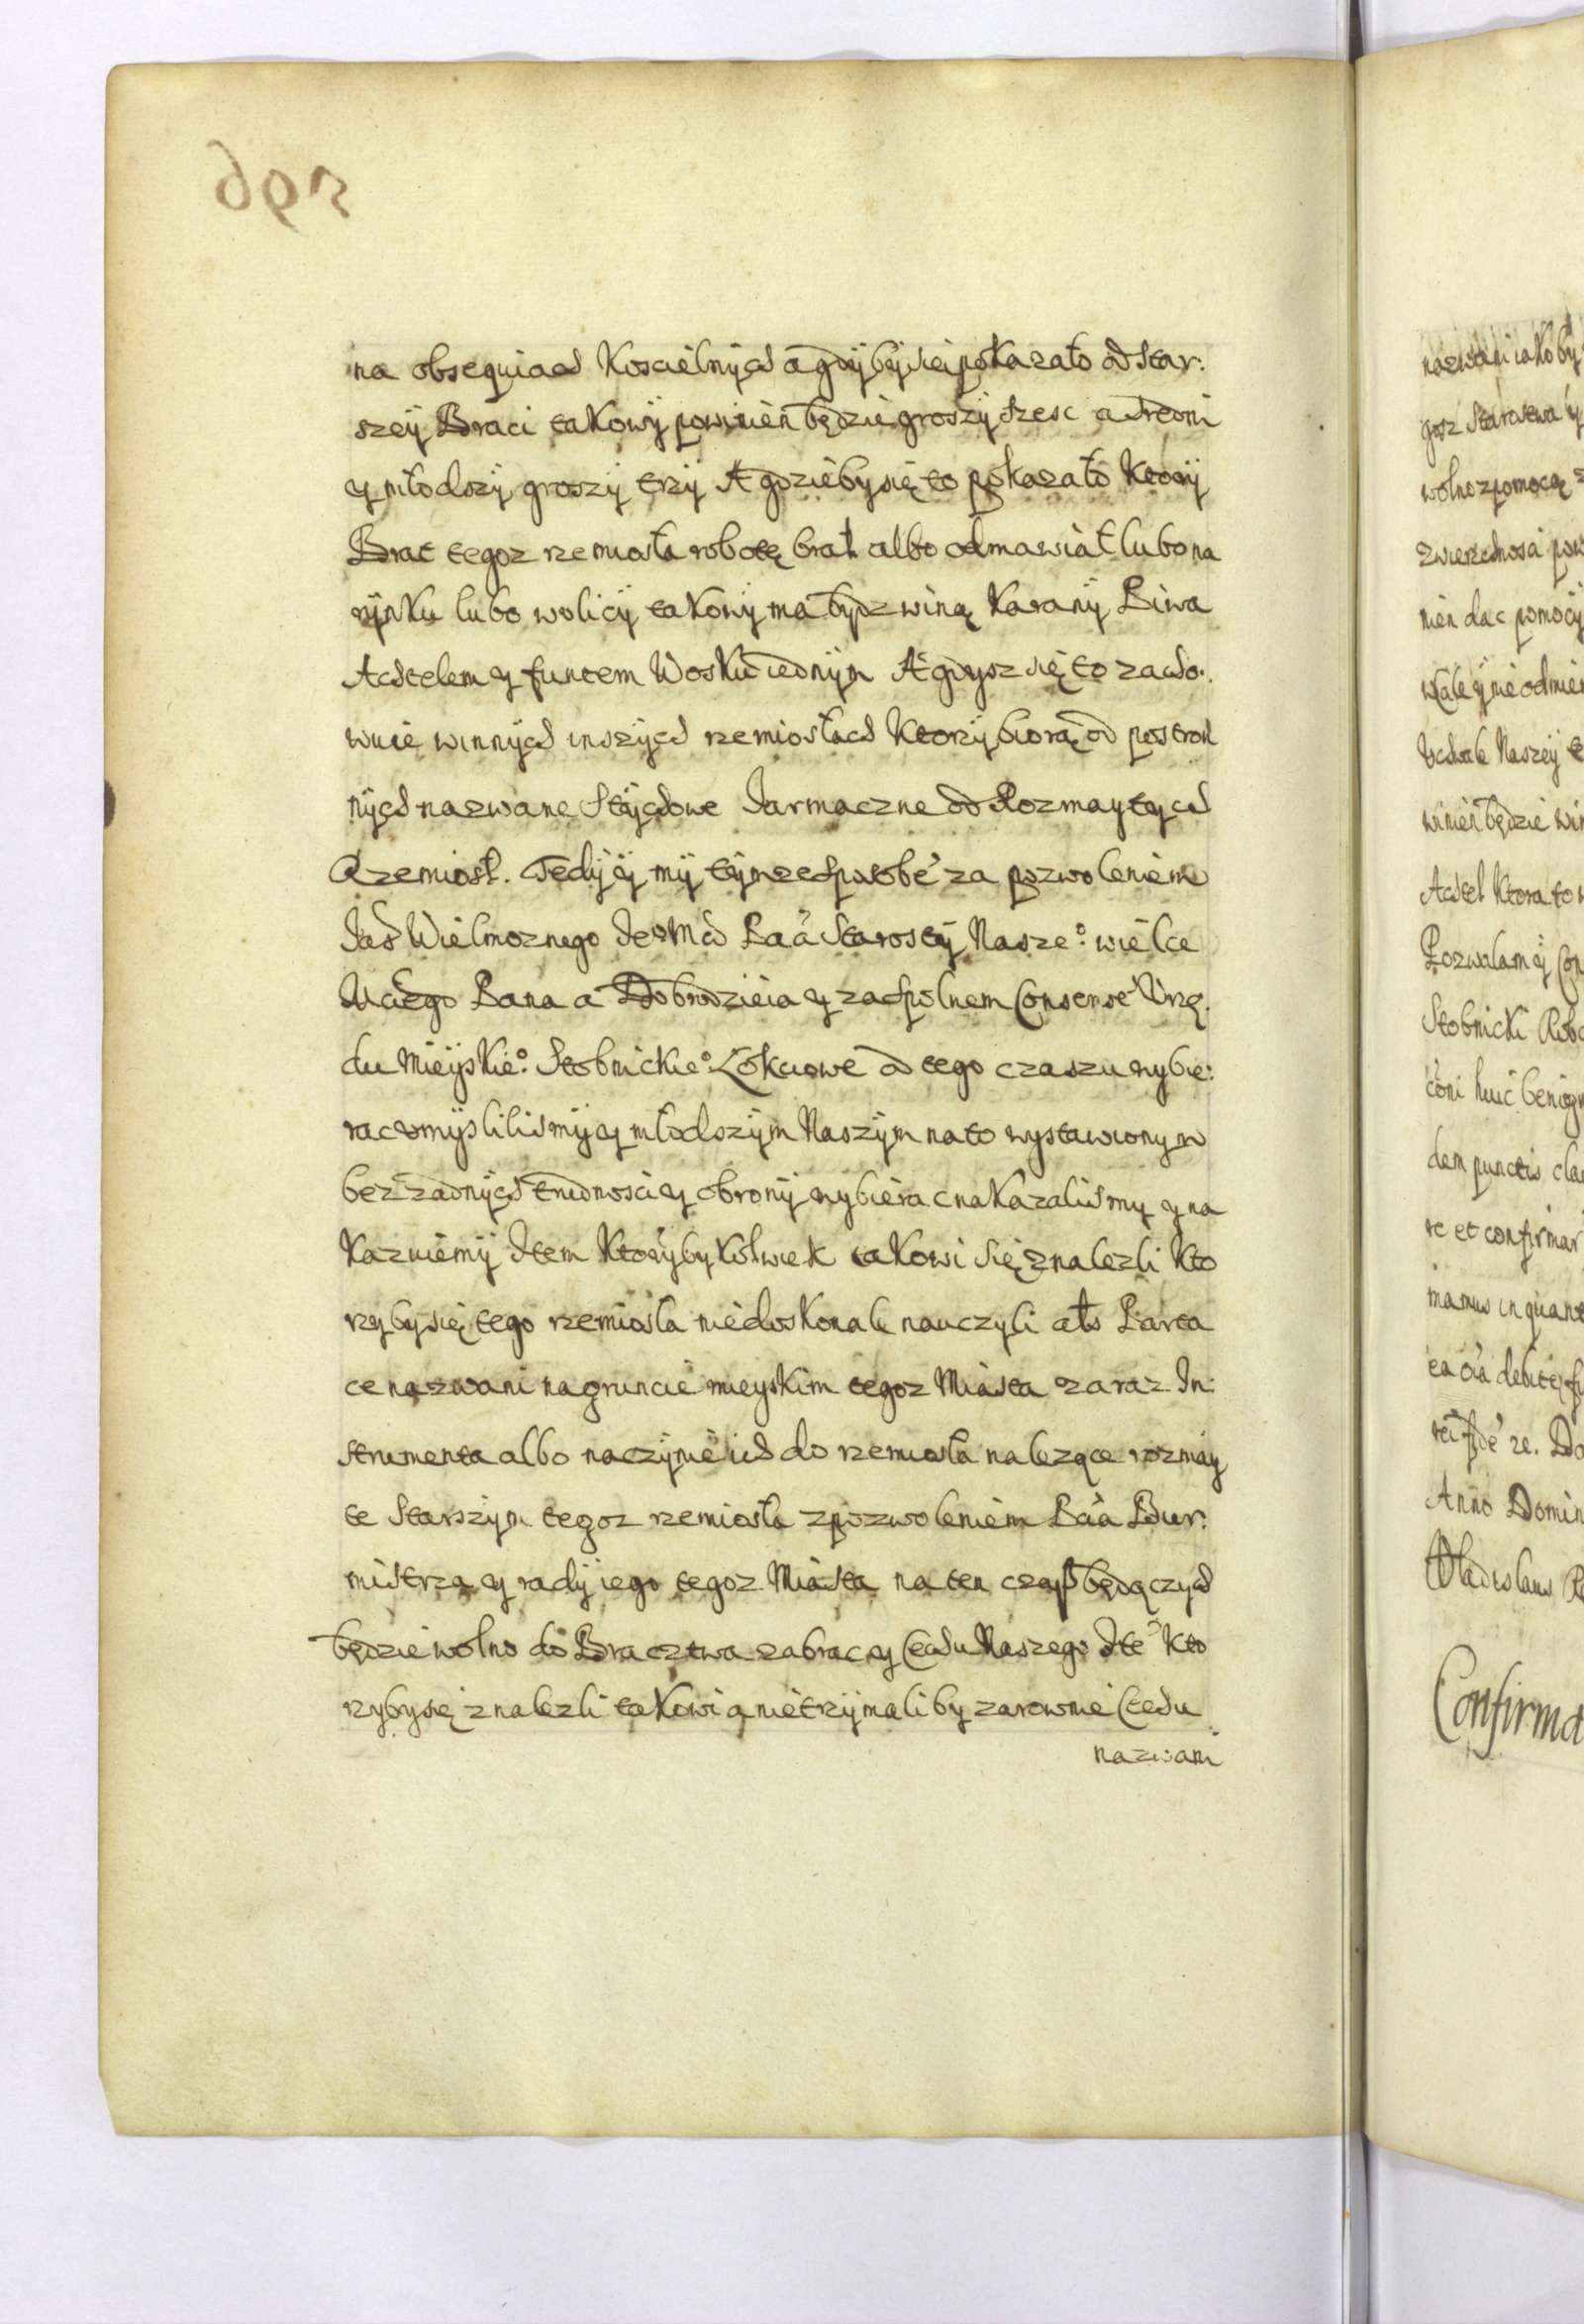 na obsequiach Koscielnÿch a gdÿ bÿ sie pokazało od Star:
szeÿ Braci takowÿ powinien będzie groszÿ szesc a sredni
y młodszÿ groszÿ trzÿ A gdzieby się to pokazało Ktorÿ
Brat tegoz rzemiosła robotę brał albo odmawiał lubo na
rÿnku lubo wulicÿ takowÿ ma bydz winą Karanÿ Piwa
Achtelem y funtem Wosku iednÿm A gdysz się to zacho:
wuie winnÿch inszÿch rzemiosłach Ktorzÿ biorą od postron
nÿch nazwane Stÿchowe Jarmaczne od Rozmaytych
Rzemiosł. Tedÿ ÿ mÿ tÿmze sposobē za pozwoleniem
Jaś Wielmoznego Je°Mci Paā Starostÿ Nasze°: wielce
Mciwego Pana a Dobrodzieia y za spolnem Consensē Vrzę:
du Mieÿskie°: Stobnickie°: Łokciowe od tego czaszu wybie:
rac vmÿslilismÿ y młodszÿm Naszÿm na to wystawionym
bez zadnÿch trudnosci y obronÿ wybierac nakazalismy y na
Kazuiemÿ Item Ktorÿby Kolwiek takowi się znalezli Kto
rzy by się tego rzemiosła niedoskonale nauczyli als Parta
ce nazwani na gruncie mieyskim tegoz Miasta zaraz In:
strumenta albo naczÿnie ich do rzemiosła nalezące rozmay
te Starszÿm tegoz rzemiosła z pozwoleniem Paā Bur:
mistrza y radÿ iego tegoz Miasta na ten czasz będączych
będzie wolno do Bractwa zabrac y Cechu Naszego Itē Kto
rzybysię znalezli takowi a nietrzÿmaliby zarownie Cechu
nazwani
nazwani iakoby
gosz Starostwa y
wolno zpomocą z
zwierzchnosci pow
nien dac pomocÿ
Vchwale Naszeÿ t
winien będzie win
Achtel Ktora to w
Pozwalam ÿ Con
Stobnicki Robo
dem punctis cla
re et confirmar
mamus in quant
Anno Domin
Vladislaus R
Confirma